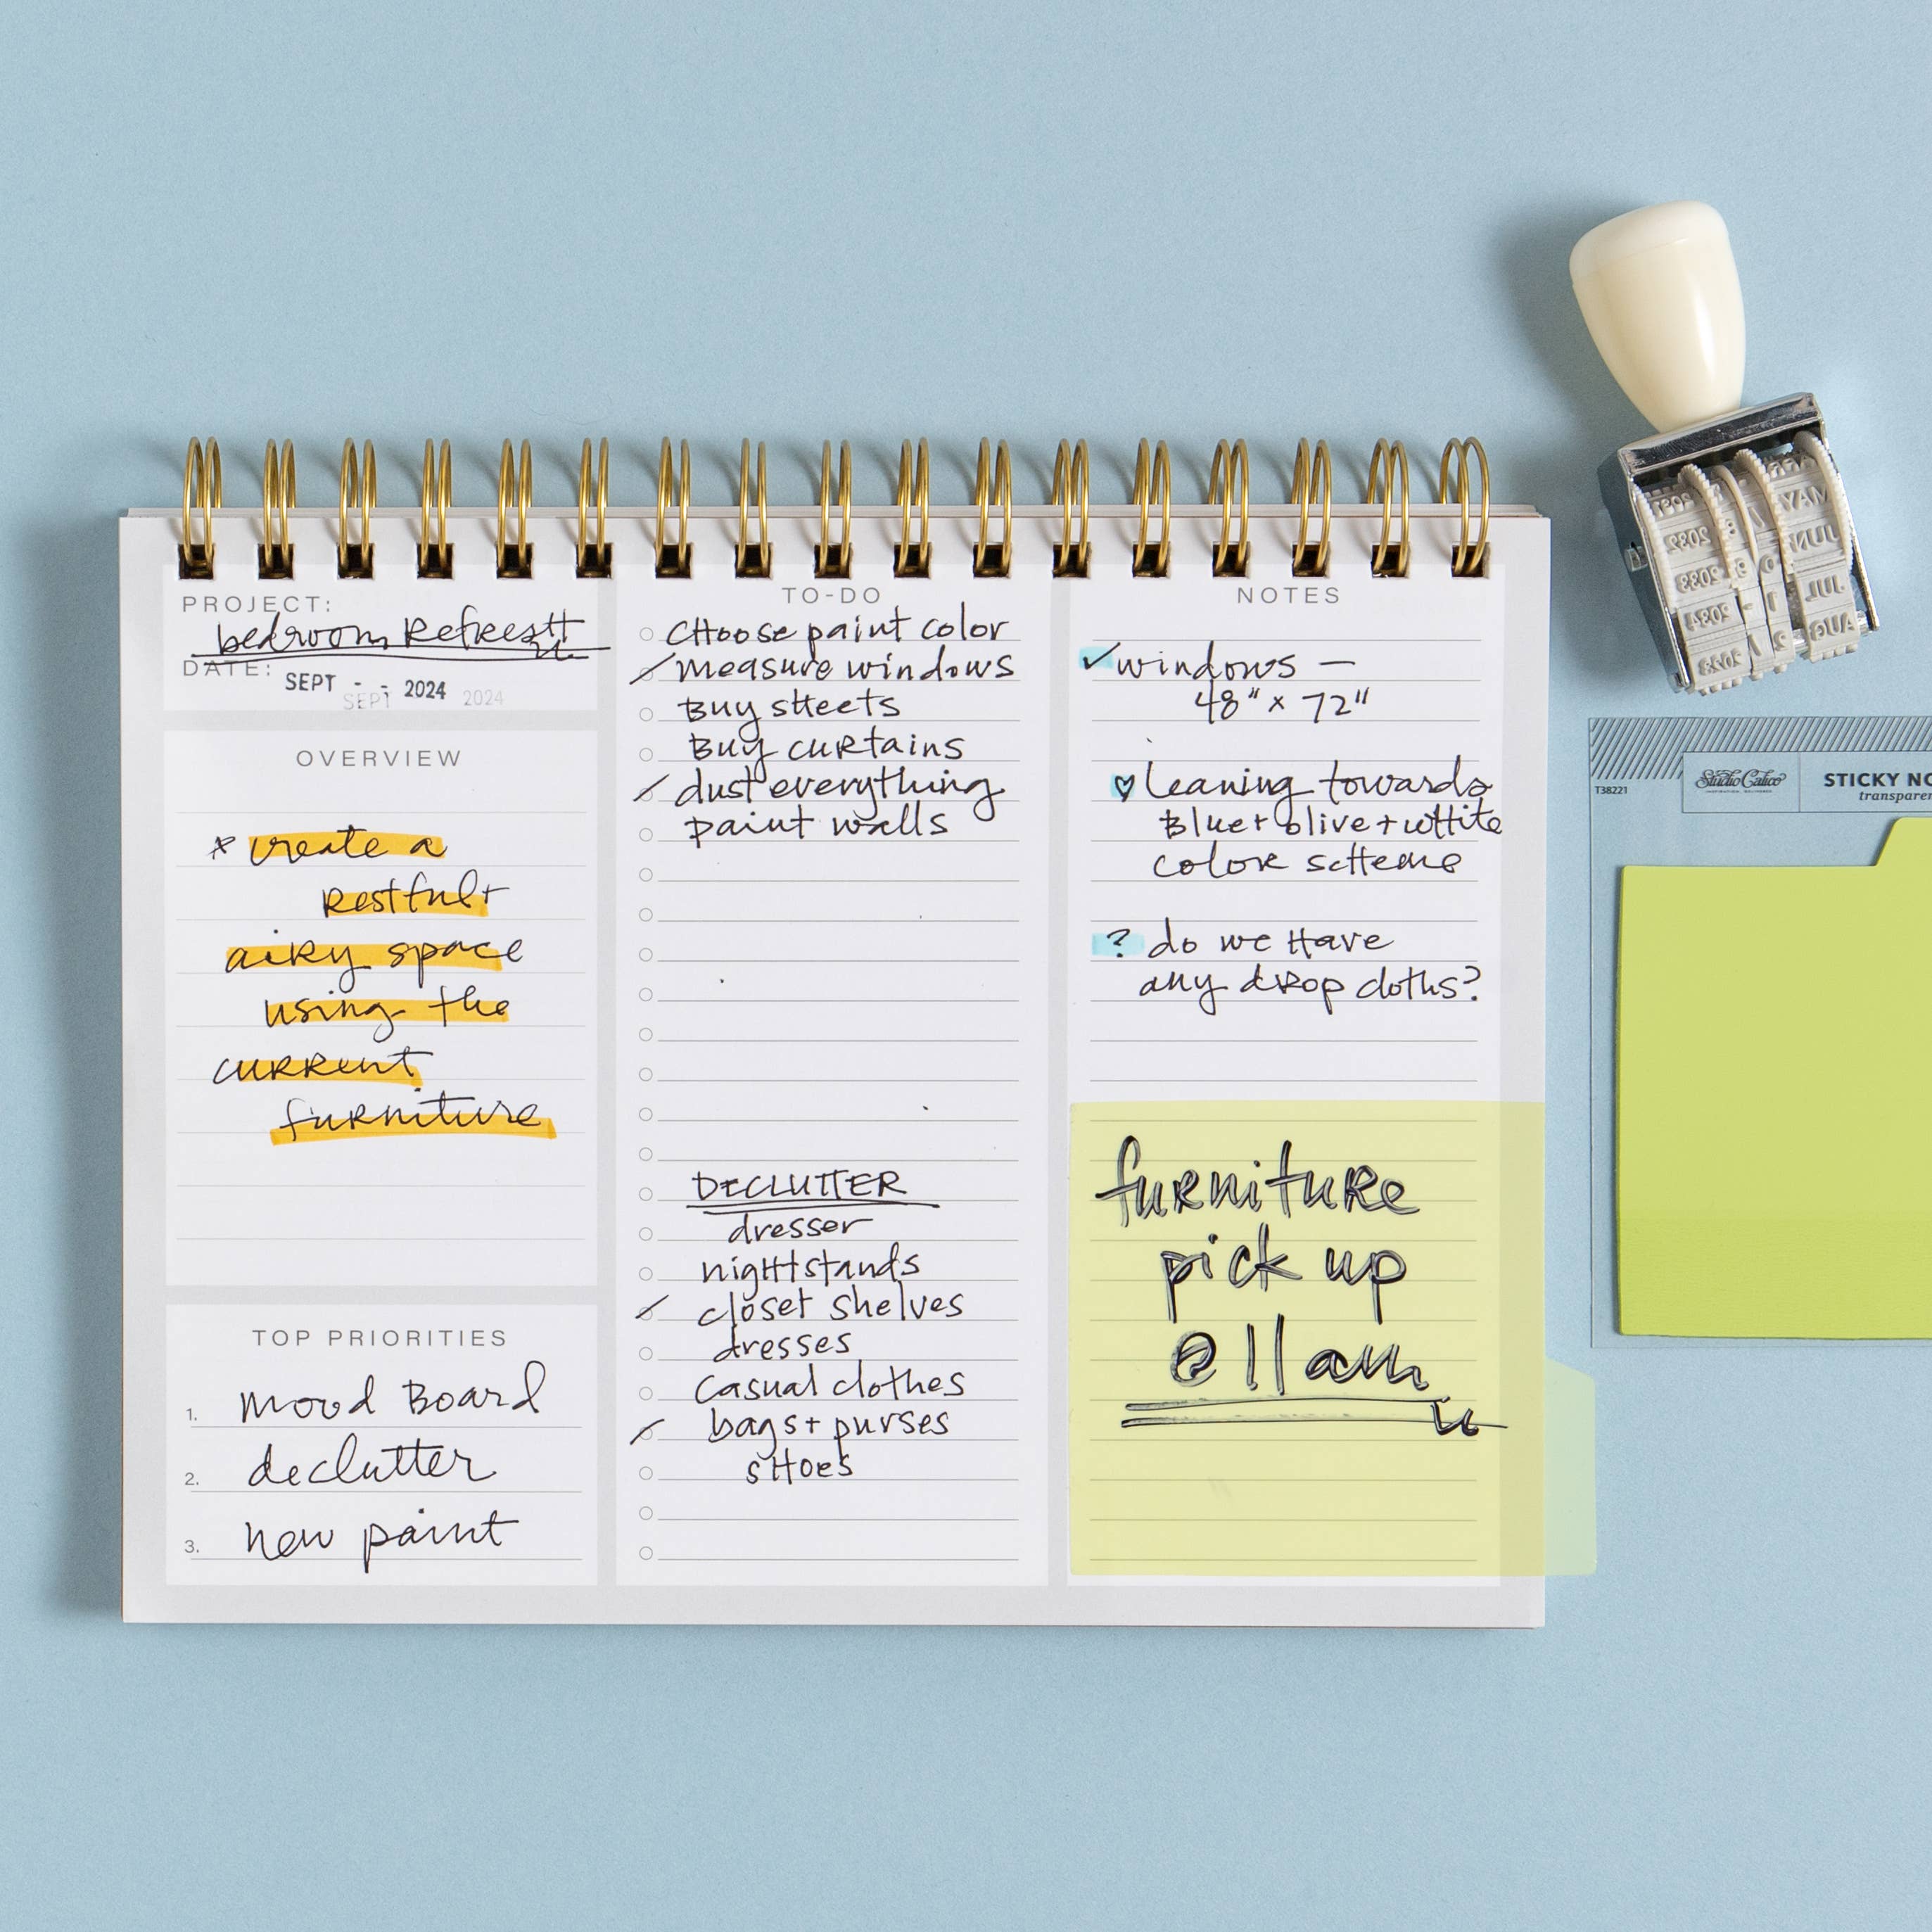 PROJECT:
bedroom Refresh
DATE: SEPT - - 2024
SEPT 2024
OVERVIEW
* create a
restful +
airy space
using the
current
furniture
TOP PRIORITIES
1. mood Board
2. declutter
3. new paint
TO-DO
Choose paint color
measure windows
Buy sheets
Buy curtains
dust everything
paint walls
DECLUTTER
dresser
nightstands
closet shelves
dresses
casual clothes
bags + purses
shoes
NOTES
✓ windows —
48" x 72"
♡ leaning towards
Blue + olive + white
color scheme
? do we have
any drop cloths?
furniture
pick up
@ 11 am
MAY
JUN
JUL
AUG
2031
2032
2033
2034
Studio Calico
STICKY NO
transparen
T38221